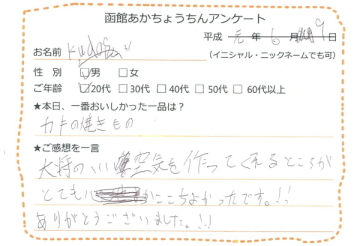 函館あかちょうちんアンケート
平成 元年 6月 9日
お名前
(イニシャル・ニックネームでも可)
性別 ☑男 □女
ご年齢 ☑20代 □30代 □40代 □50代 □60代以上
★本日、一番おいしかった一品は?
カキの焼きもの
★ご感想を一言
大将のいい雰空気を作ってくれるところが
とてもいここちよかったです。!!
ありがとうございました。!!